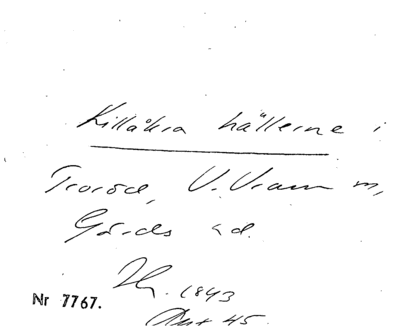 Killåkra hällerne i
Tororöd, V. Vram m,
Gärds hd.
1843
Nr 7767.